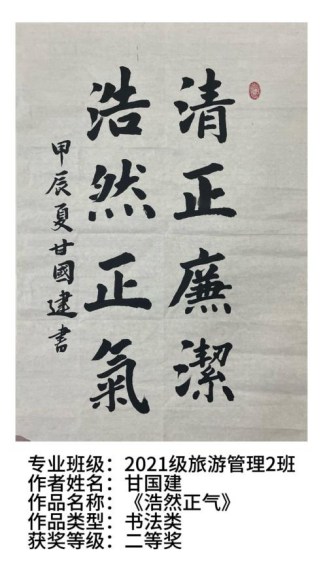 清正廉潔
浩然正氣
甲辰夏甘國建書
专业班级：2021级旅游管理2班
作者姓名：甘国建
作品名称：《浩然正气》
作品类型：书法类
获奖等级：二等奖